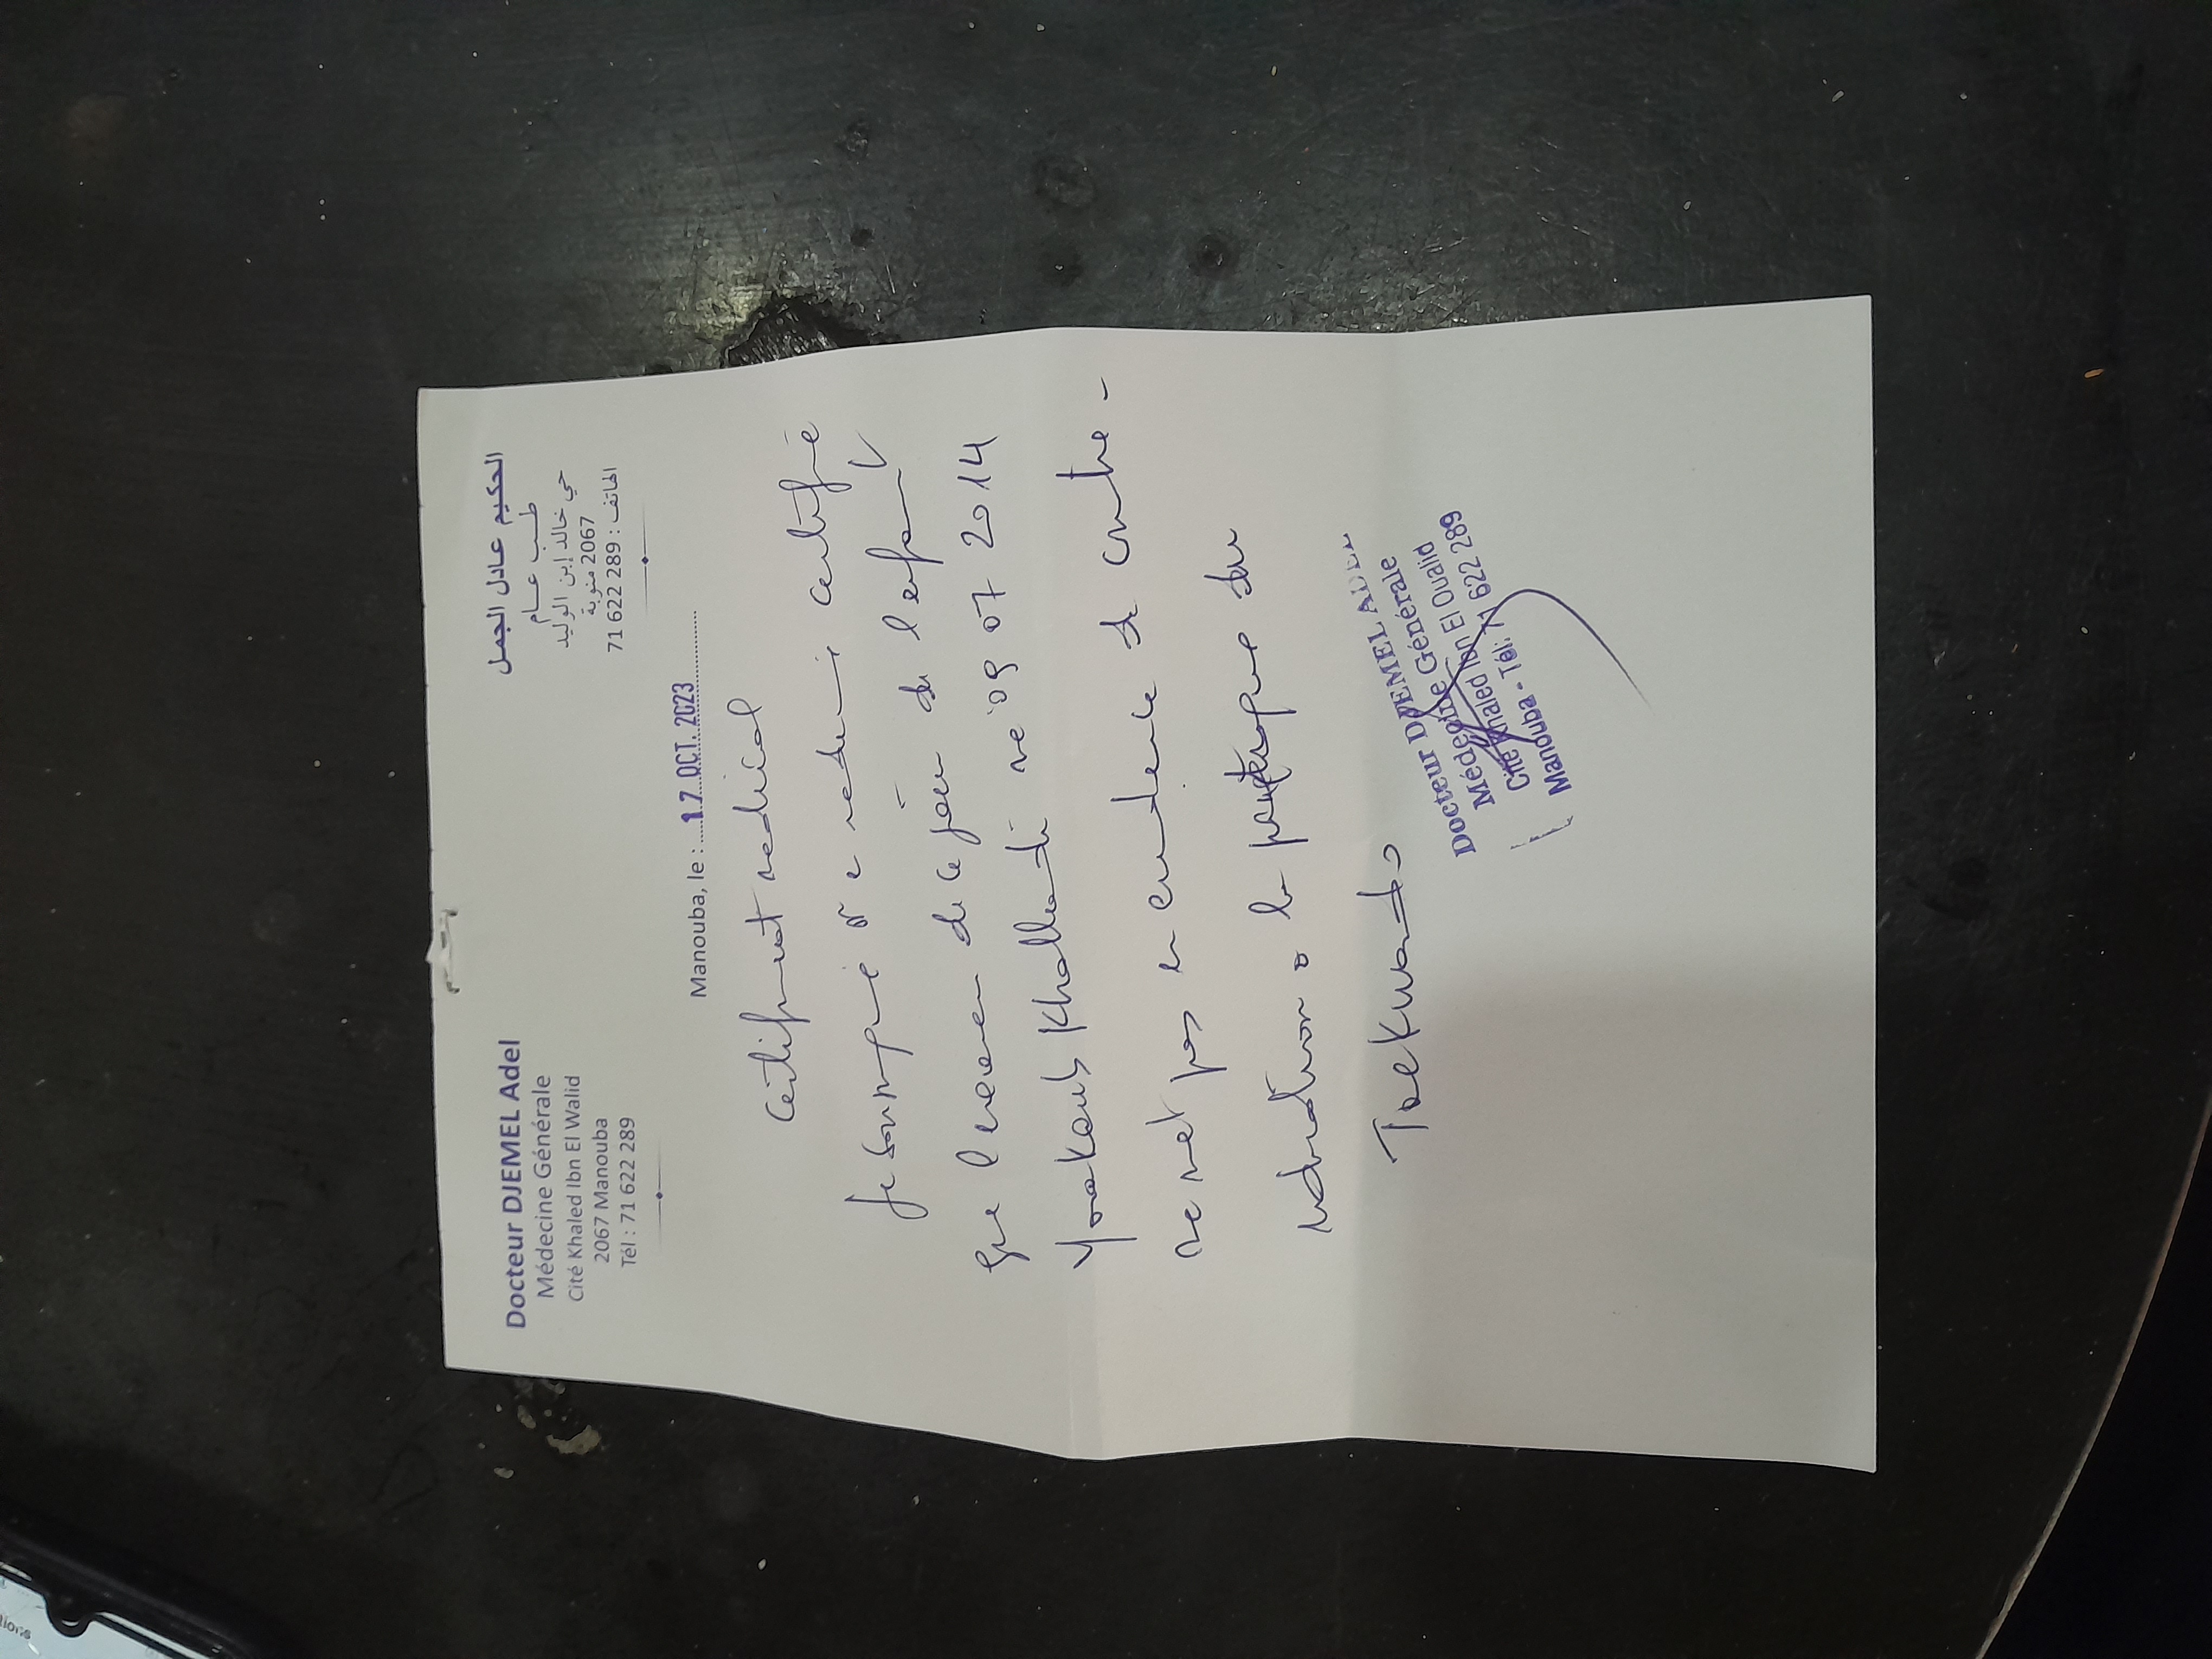 Docteur DJEMEL Adel
Médecine Générale
Cité Khaled Ibn El Walid
2067 Manouba
Tél : 71 622 289
الحكيم عادل الجمل
طب عام
حي خالد إبن الوليد
2067 منوبة
الهاتف : 71 622 289
Manouba, le : 17 OCT. 2023
Certificat medical
Je soussigné certifie
que l'examen de ce jour de l'enfant
Khalladi né 09 07 2014
ne met pas en evidence de contre-
indication a la pratique du
Taekwando
Docteur DJEMEL ADEL
Médecine Générale
Cité Khaled Ibn El Oualid
Manouba - Tél: 71 622 289
tions